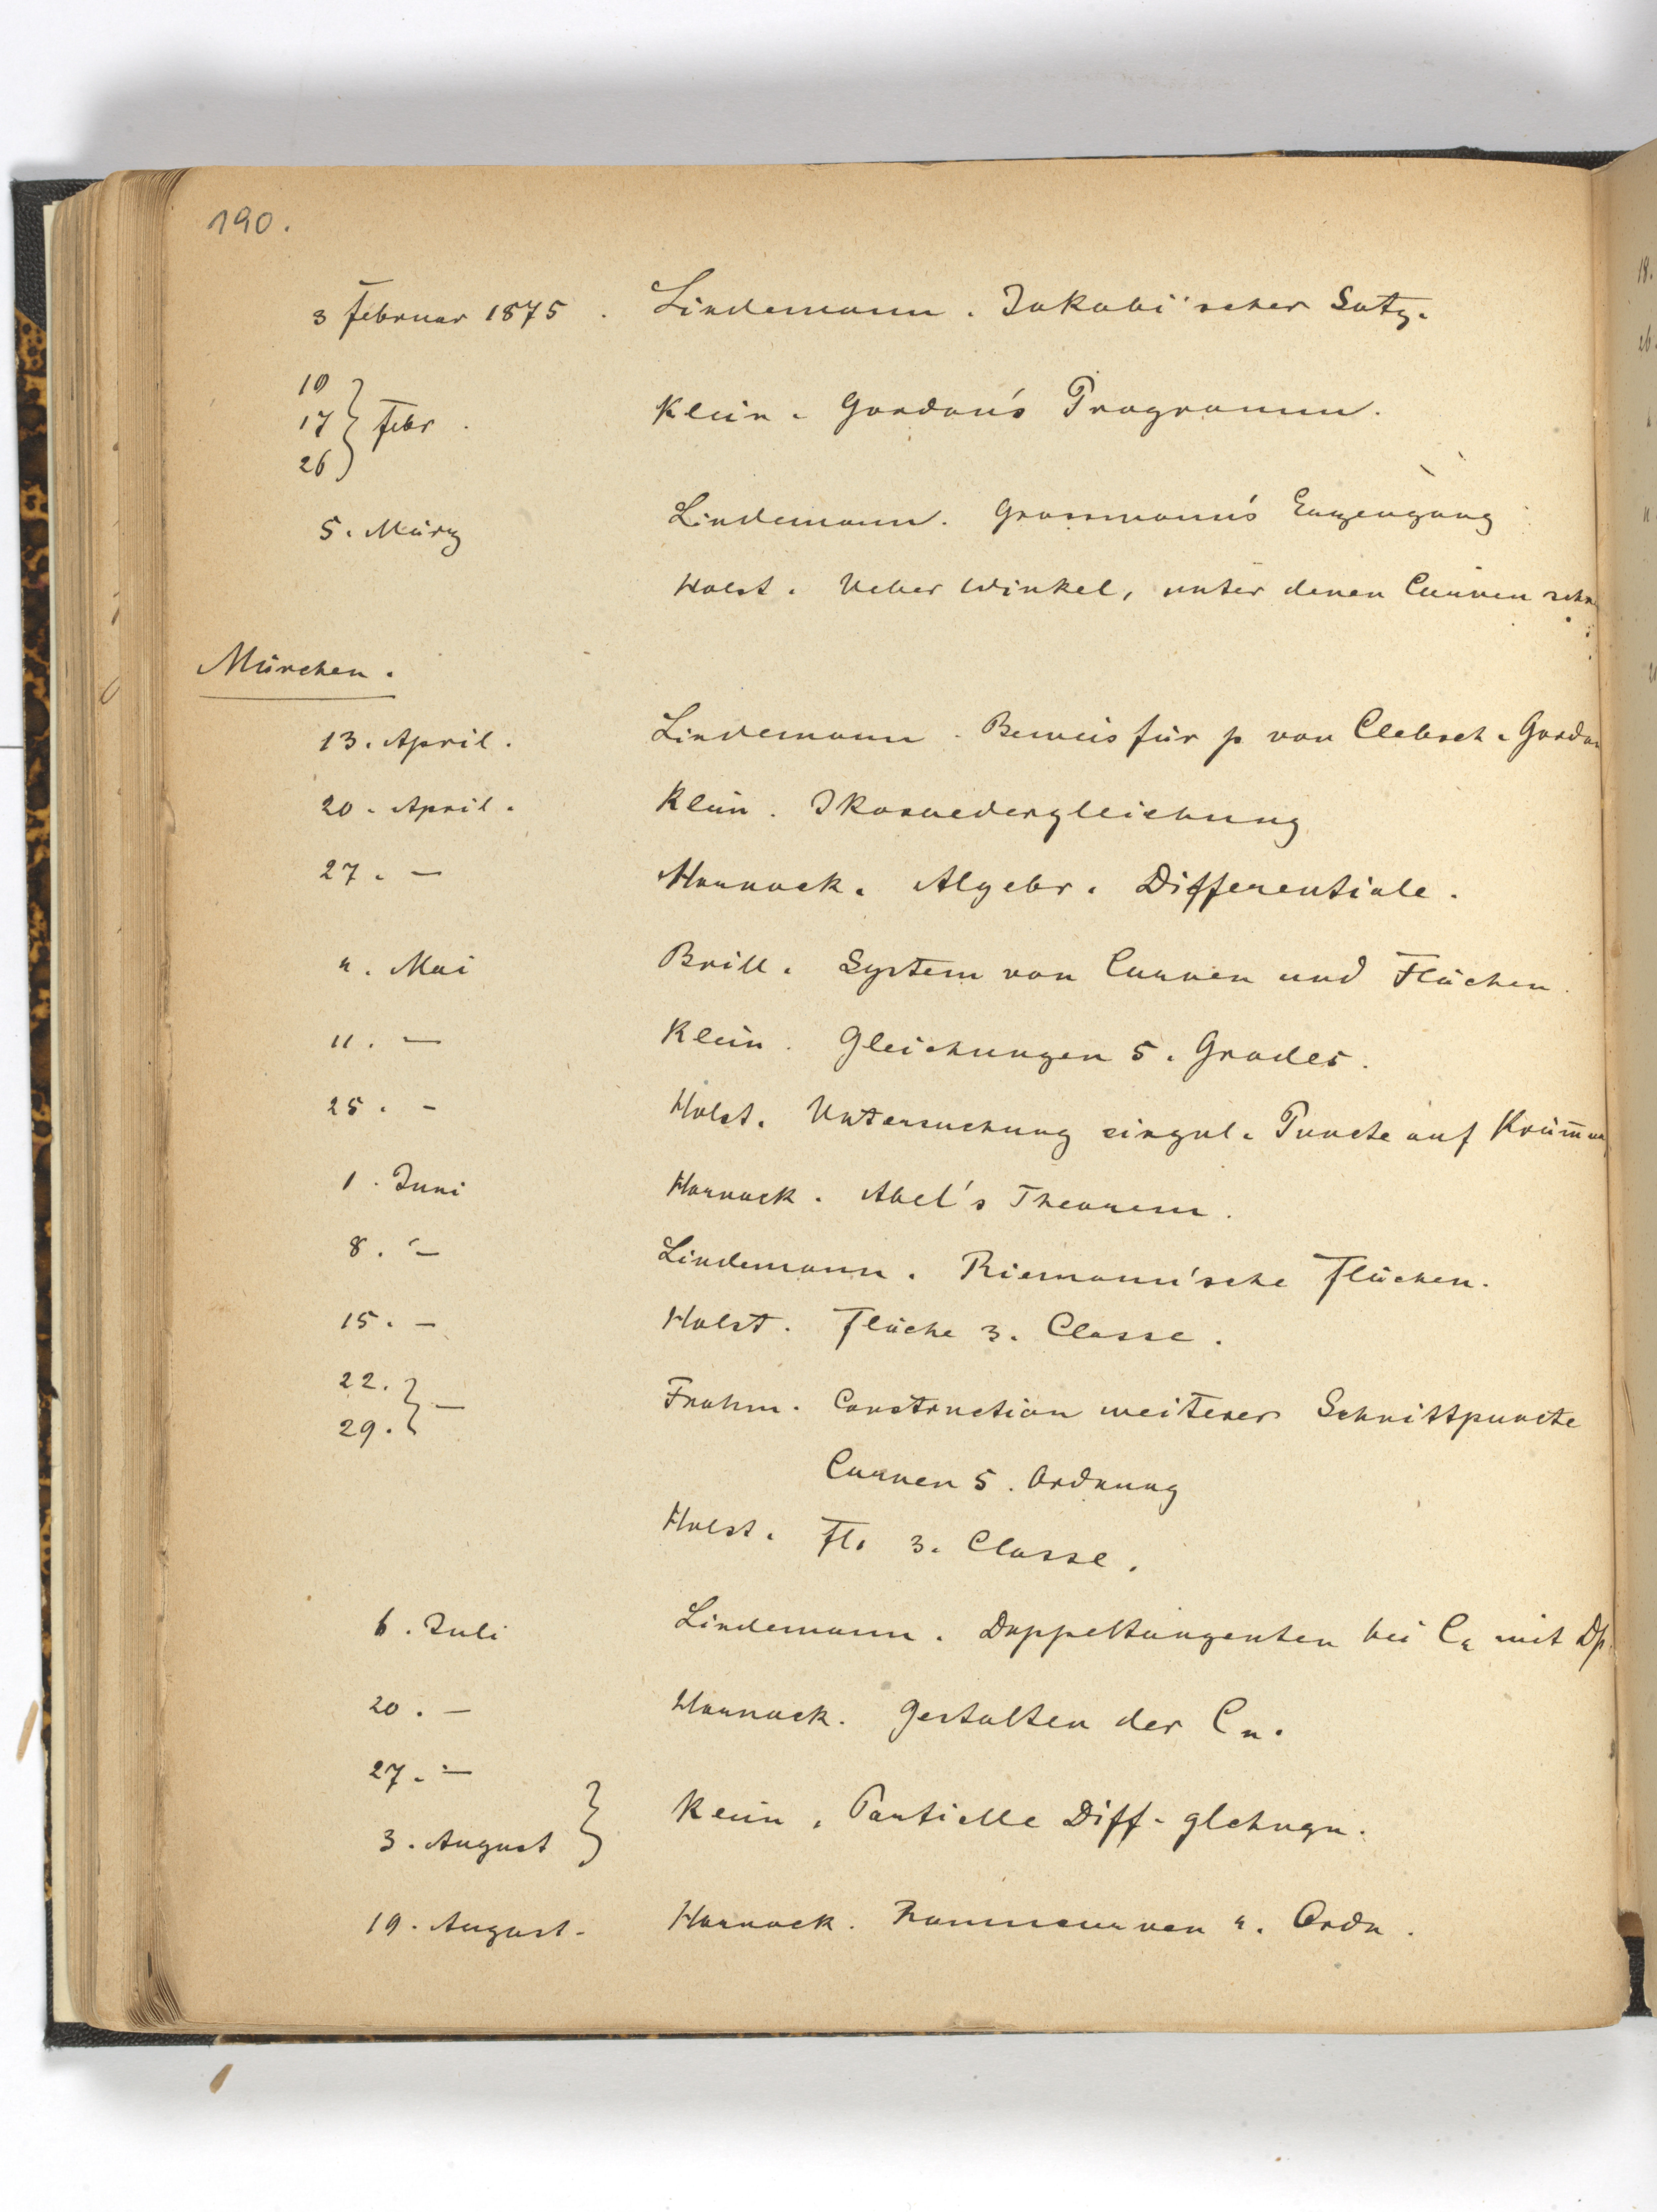 190.
3 Februar 1875. Lindemann. Jakobi'scher Satz.
10
17 } Febr. Klein. Gordan's Programm.
26
5. März Lindemann. Grassmann's Erzeugung
Holst. Ueber Winkel, unter denen Curven
München.
13. April. Lindemann. Beweis für p von Clebsch. Gordan
20. April. Klein. Ikosaedergleichung
27. — Harnack. Algebr. Differentiale.
4. Mai Brill. System von Curven und Flächen.
11. — Klein. Gleichungen 5. Grades.
25. — Holst. Untersuchung singul. Puncte auf
1. Juni Harnack. Abel's Theorem.
8. — Lindemann. Riemann'sche Flächen.
15. — Holst. Fläche 3. Classe.
22. } —
29. Frahm. Construction weiterer Schnittpuncte
Curven 5. Ordnung
Holst. Fl. 3. Classe.
6. Juli Lindemann. Doppeltangenten bei C4 mit Dp.
20. — Harnack. Gestalten der Cn.
27. —
3. August } Klein. Partielle Diff. glchngn.
19. August. Harnack. Raumcurven 4. Ordn.